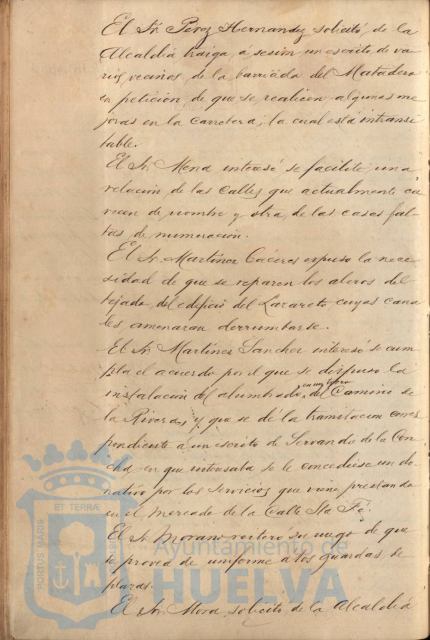 El Sr. Perez Hernandez solicitó, de la
Alcaldía traiga a sesión un escrito de va
rios vecinos de la barriada del Matadero
en petición de que se realicen algunas me
joras en la Carretera, la cual está intransi
table.
El Sr. Mena interesó se facilite una
relación de las Calles que actualmente ca
recen de nombre y otra de las casas fal
tas de numeración.
El Sr. Martinez Cáceres expuso la nece
sidad de que se reparen los aleros del
tejado del edificio del Lazareto cuyas cana
les amenazan derrumbarse.
El Sr. Martinez Sanchez interesó se cum
pla el acuerdo por el que se dispuso la
instalación del alumbrado en un trozo del Camino de
la Rivera y que se de la tramitación corres
pondiente a un escrito de Servando de la Con
cha en que interesaba se le concediese un do
nativo por los servicios que viene prestando
en el Mercado de la Calle Sta Fé.
El Sr. Morano reitera su ruego de que
se provea de uniforme a los guardas de
plazas.
El Sr. Mora solicitó de la Alcaldía
PORTUS MARIS
ET TERRAE
Ayuntamiento de
HUELVA